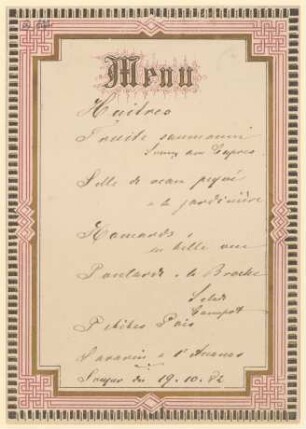 Menu
Huitres
Truite saumonnée
Sauce aux Capres
Selle de veau piqué
a la jardinière
Homards
en belle vue
Poularde a la Broche
Salade
Compot
Petites Pois
Savarin a l'Ananas
Souper du 19.10.82